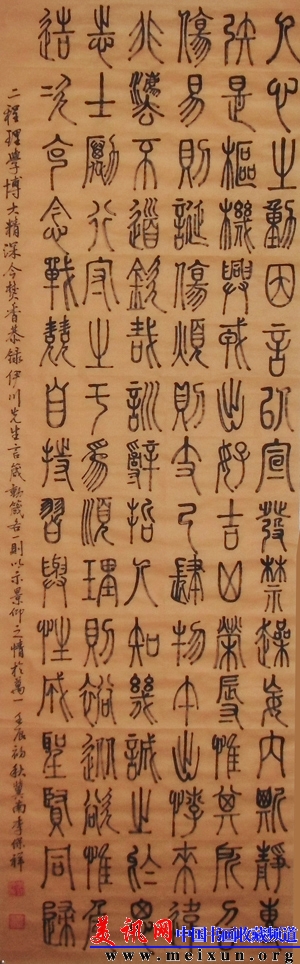 人心之動因言以宣發禁躁妄內斯靜專
矧是樞機興戎出好吉凶榮辱惟其所召
傷易則誕傷煩則支己肆物忤出悖來違
非灋不道欽哉訓辭哲人知幾誠之於思
志士勵行守之於為順理則裕從欲惟危
造次克念戰兢自持習與性成聖賢同歸
二程理學博大精深今焚香恭録伊川先生言箴動箴各一則以示景仰之情於萬一壬辰初秋冀南李保祥
美讯网 中国书画收藏频道
www.meixun.org